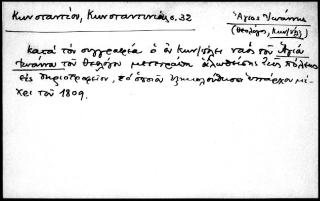 Κωνσταντίου, Κωνσταντινιάς, σ. 32
Ἅγιος Ἰωάννης
(Θεολόγος, Κων/πόλις)
κατὰ τὸν συγγραφέα ὁ ἐν Κων/πόλει ναὸς τοῦ Ἁγίου
Ἰωάννου τοῦ Θεολόγου μετετράπη ἁλωθείσης τῆς πόλεως
εἰς θηριοτροφεῖον, τὸ ὁποῖον ἐξηκολούθησε ὑπάρχον μέ-
χρι τοῦ 1809.